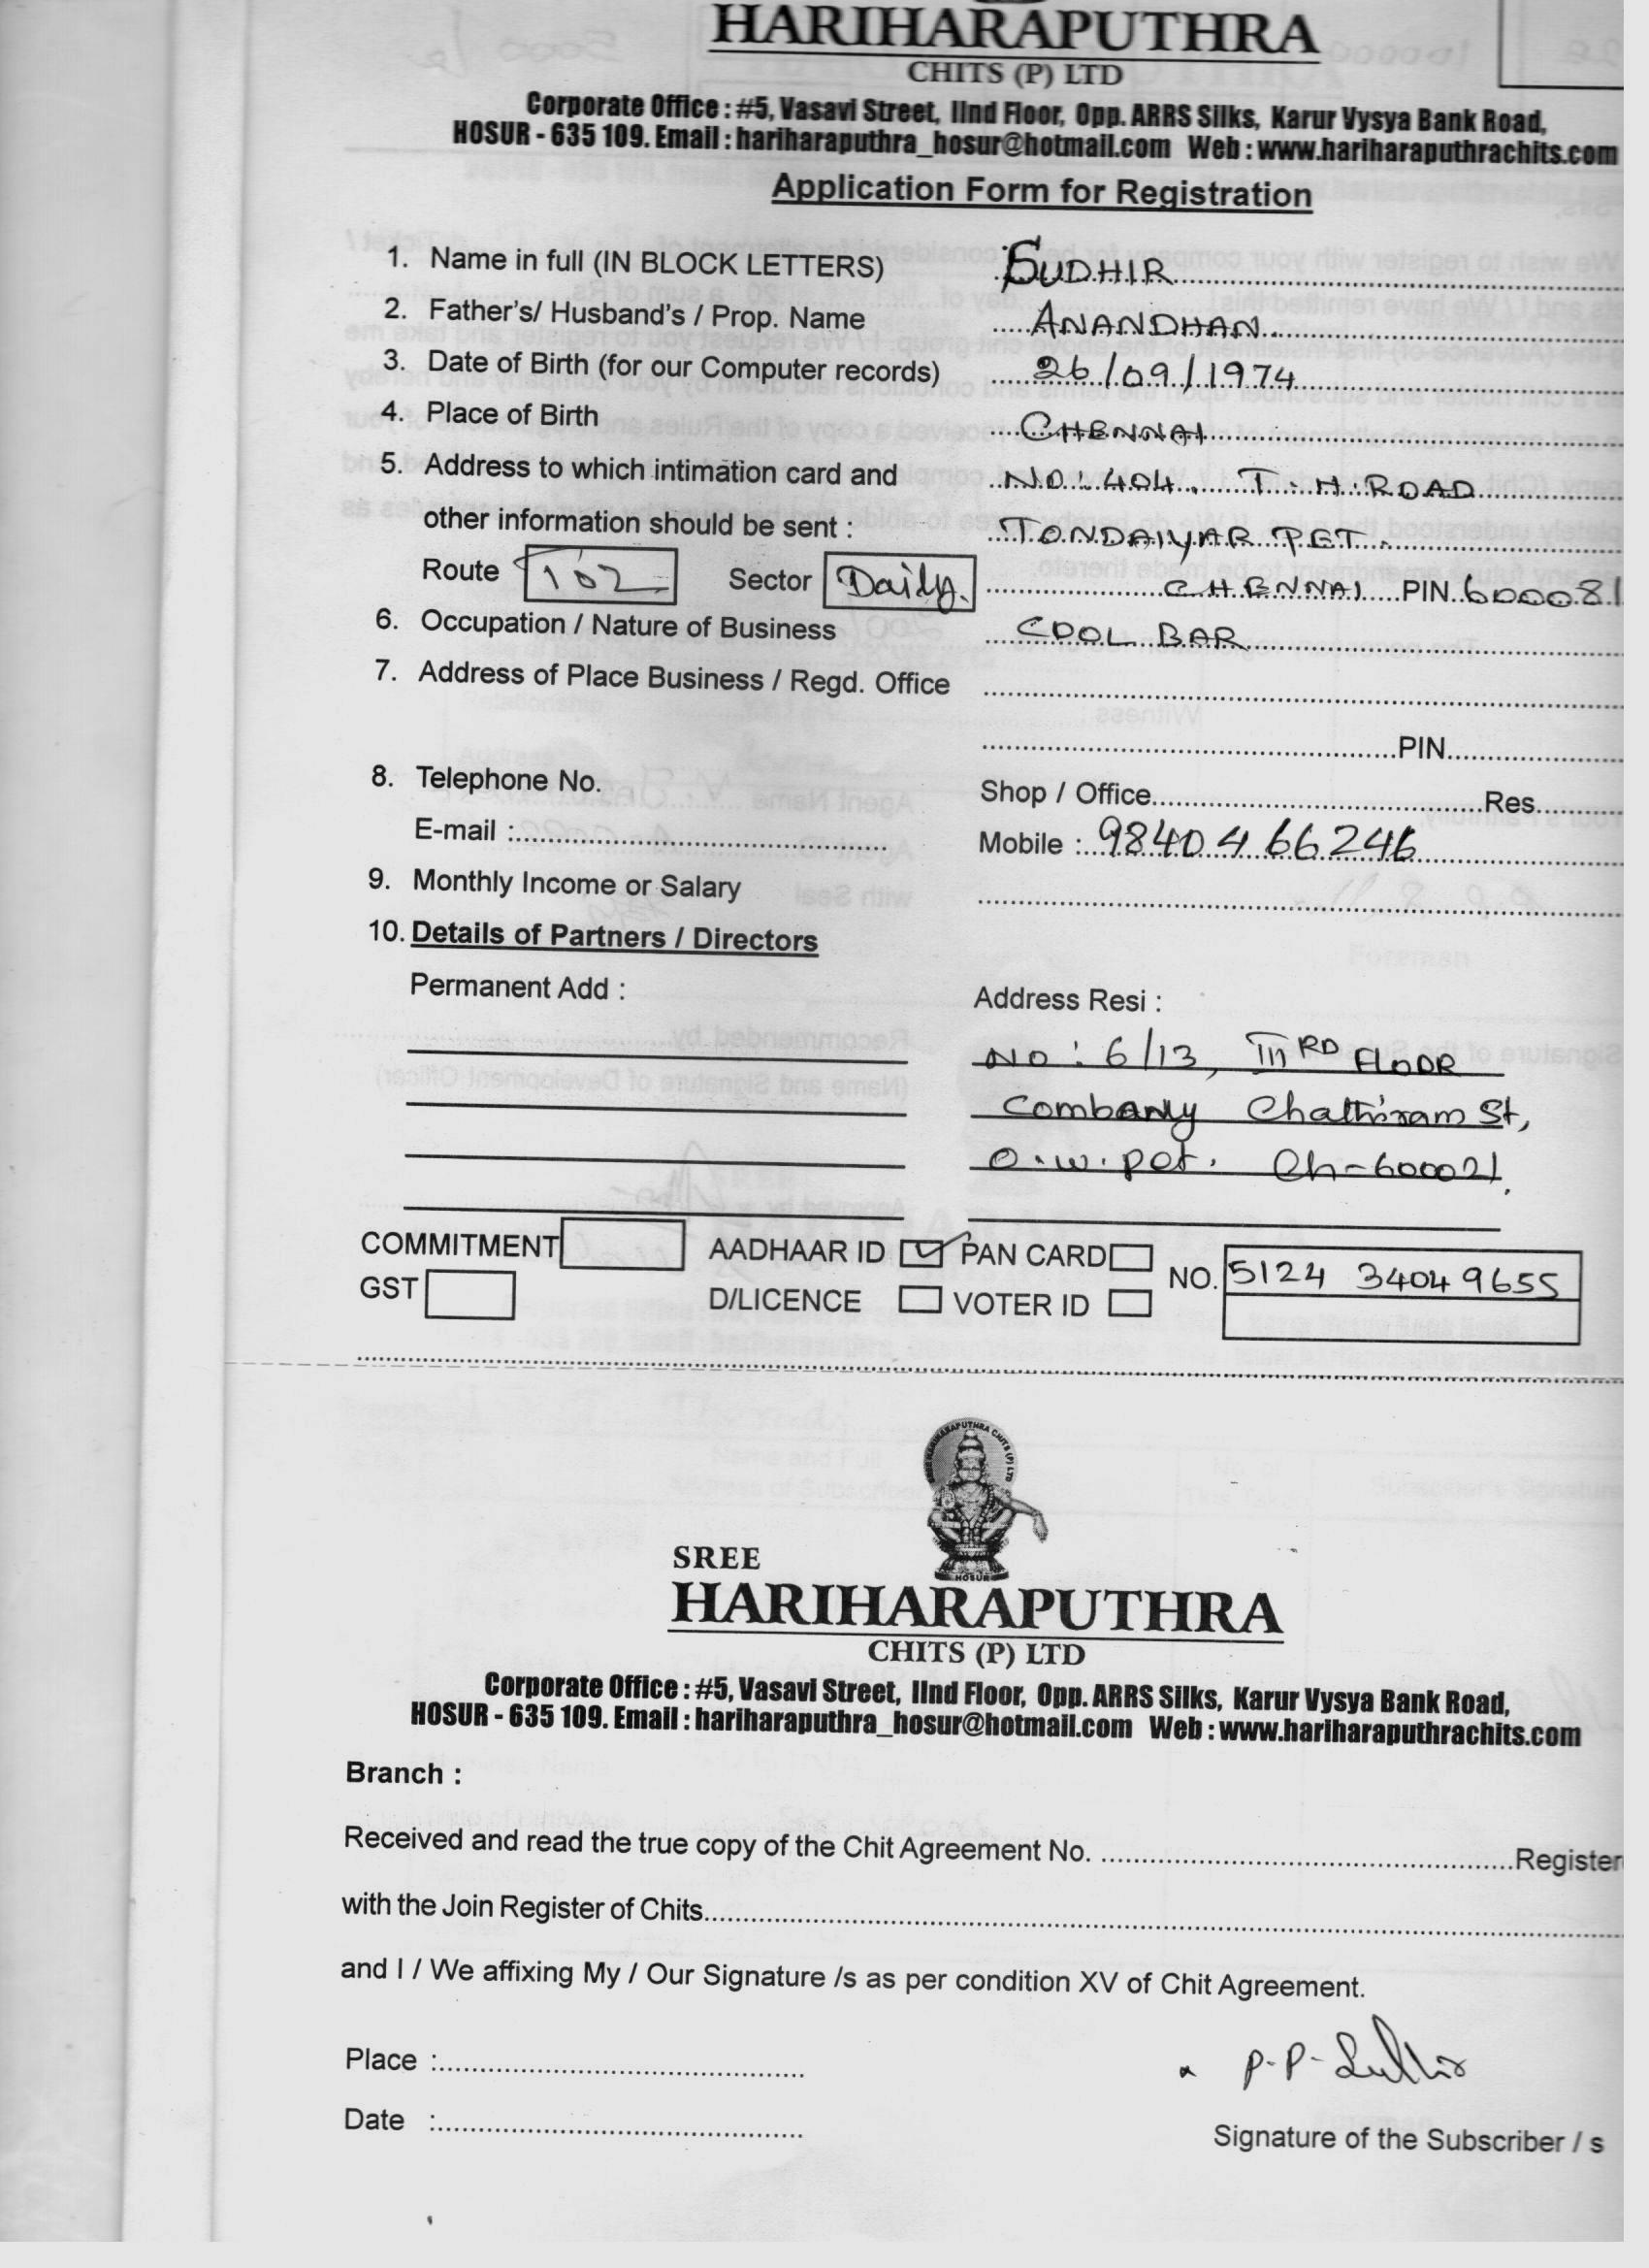 HARIHARAPUTHRA
CHITS (P) LTD
Corporate Office : #5, Vasavi Street, IInd Floor, Opp. ARRS Silks, Karur Vysya Bank Road,
HOSUR - 635 109. Email : hariharaputhra_hosur@hotmail.com Web : www.hariharaputhrachits.com
Application Form for Registration
1. Name in full (IN BLOCK LETTERS) SUDHIR
2. Father's/ Husband's / Prop. Name ANANDHAN
3. Date of Birth (for our Computer records) 26/09/1974
4. Place of Birth CHENNAI
5. Address to which intimation card and NO: 404, T.H. ROAD
other information should be sent : TONDAIYAR PET.
Route 102 Sector Daily. CHENNAI PIN 600081
6. Occupation / Nature of Business COOL BAR
7. Address of Place Business / Regd. Office
PIN
8. Telephone No. Shop / Office Res.
E-mail : Mobile : 9840466246
9. Monthly Income or Salary
10. Details of Partners / Directors
Permanent Add : Address Resi :
NO: 6/13, IIIRD FLOOR
Combany Chathiram St,
O.W.Pet. Ch-600021.
COMMITMENT AADHAAR ID PAN CARD NO. 5124 3404 9655
GST D/LICENCE VOTER ID
SREE HARIHARAPUTHRA CHITS (P) LTD
HOSUR
SREE
HARIHARAPUTHRA
CHITS (P) LTD
Corporate Office : #5, Vasavi Street, IInd Floor, Opp. ARRS Silks, Karur Vysya Bank Road,
HOSUR - 635 109. Email : hariharaputhra_hosur@hotmail.com Web : www.hariharaputhrachits.com
Branch :
Received and read the true copy of the Chit Agreement No. Register
with the Join Register of Chits
and I / We affixing My / Our Signature /s as per condition XV of Chit Agreement.
Place : P.P. Sudhir
Date :
Signature of the Subscriber / s